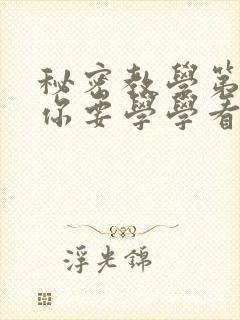 秘密教學第
你要學學看
浮光錦